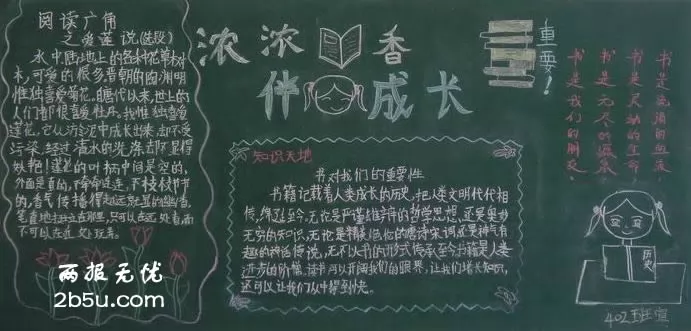 阅读广角
之爱莲说(选段)
水中陆地上的各种花草树
木,可爱的很多晋朝的陶渊明
惟独喜爱菊花。唐代以来,世上的
人们都很喜爱牡丹。我惟独喜爱
莲花。它从污泥中成长出来,却不受
污染。经过清水的洗涤却不显得
妖艳!莲花的叶柄中间是空的,
外面是直的,
的,香气传播得
不可以在近处玩弄。
浓浓书香
伴我成长
重要!
知识天地
书对我们的重要性
书籍记载着人类成长的历史,把人类文明代代相
传,绵延至今。无论是严谨缜密的哲学思想,还是奥妙
无穷的知识,无论是 的唐诗宋词还是神气有
趣的神话传说,无不以书的形式传承至今书籍是人类
进步的阶梯,读书可以开阔我们的眼界,让我们增长知识,
还可以让我们从中得到快乐。
书是我们的朋友
书是无尽的源泉
书是灵动的生命
书是流淌的血液
历史
402班宣
两报无优
2b5u.com